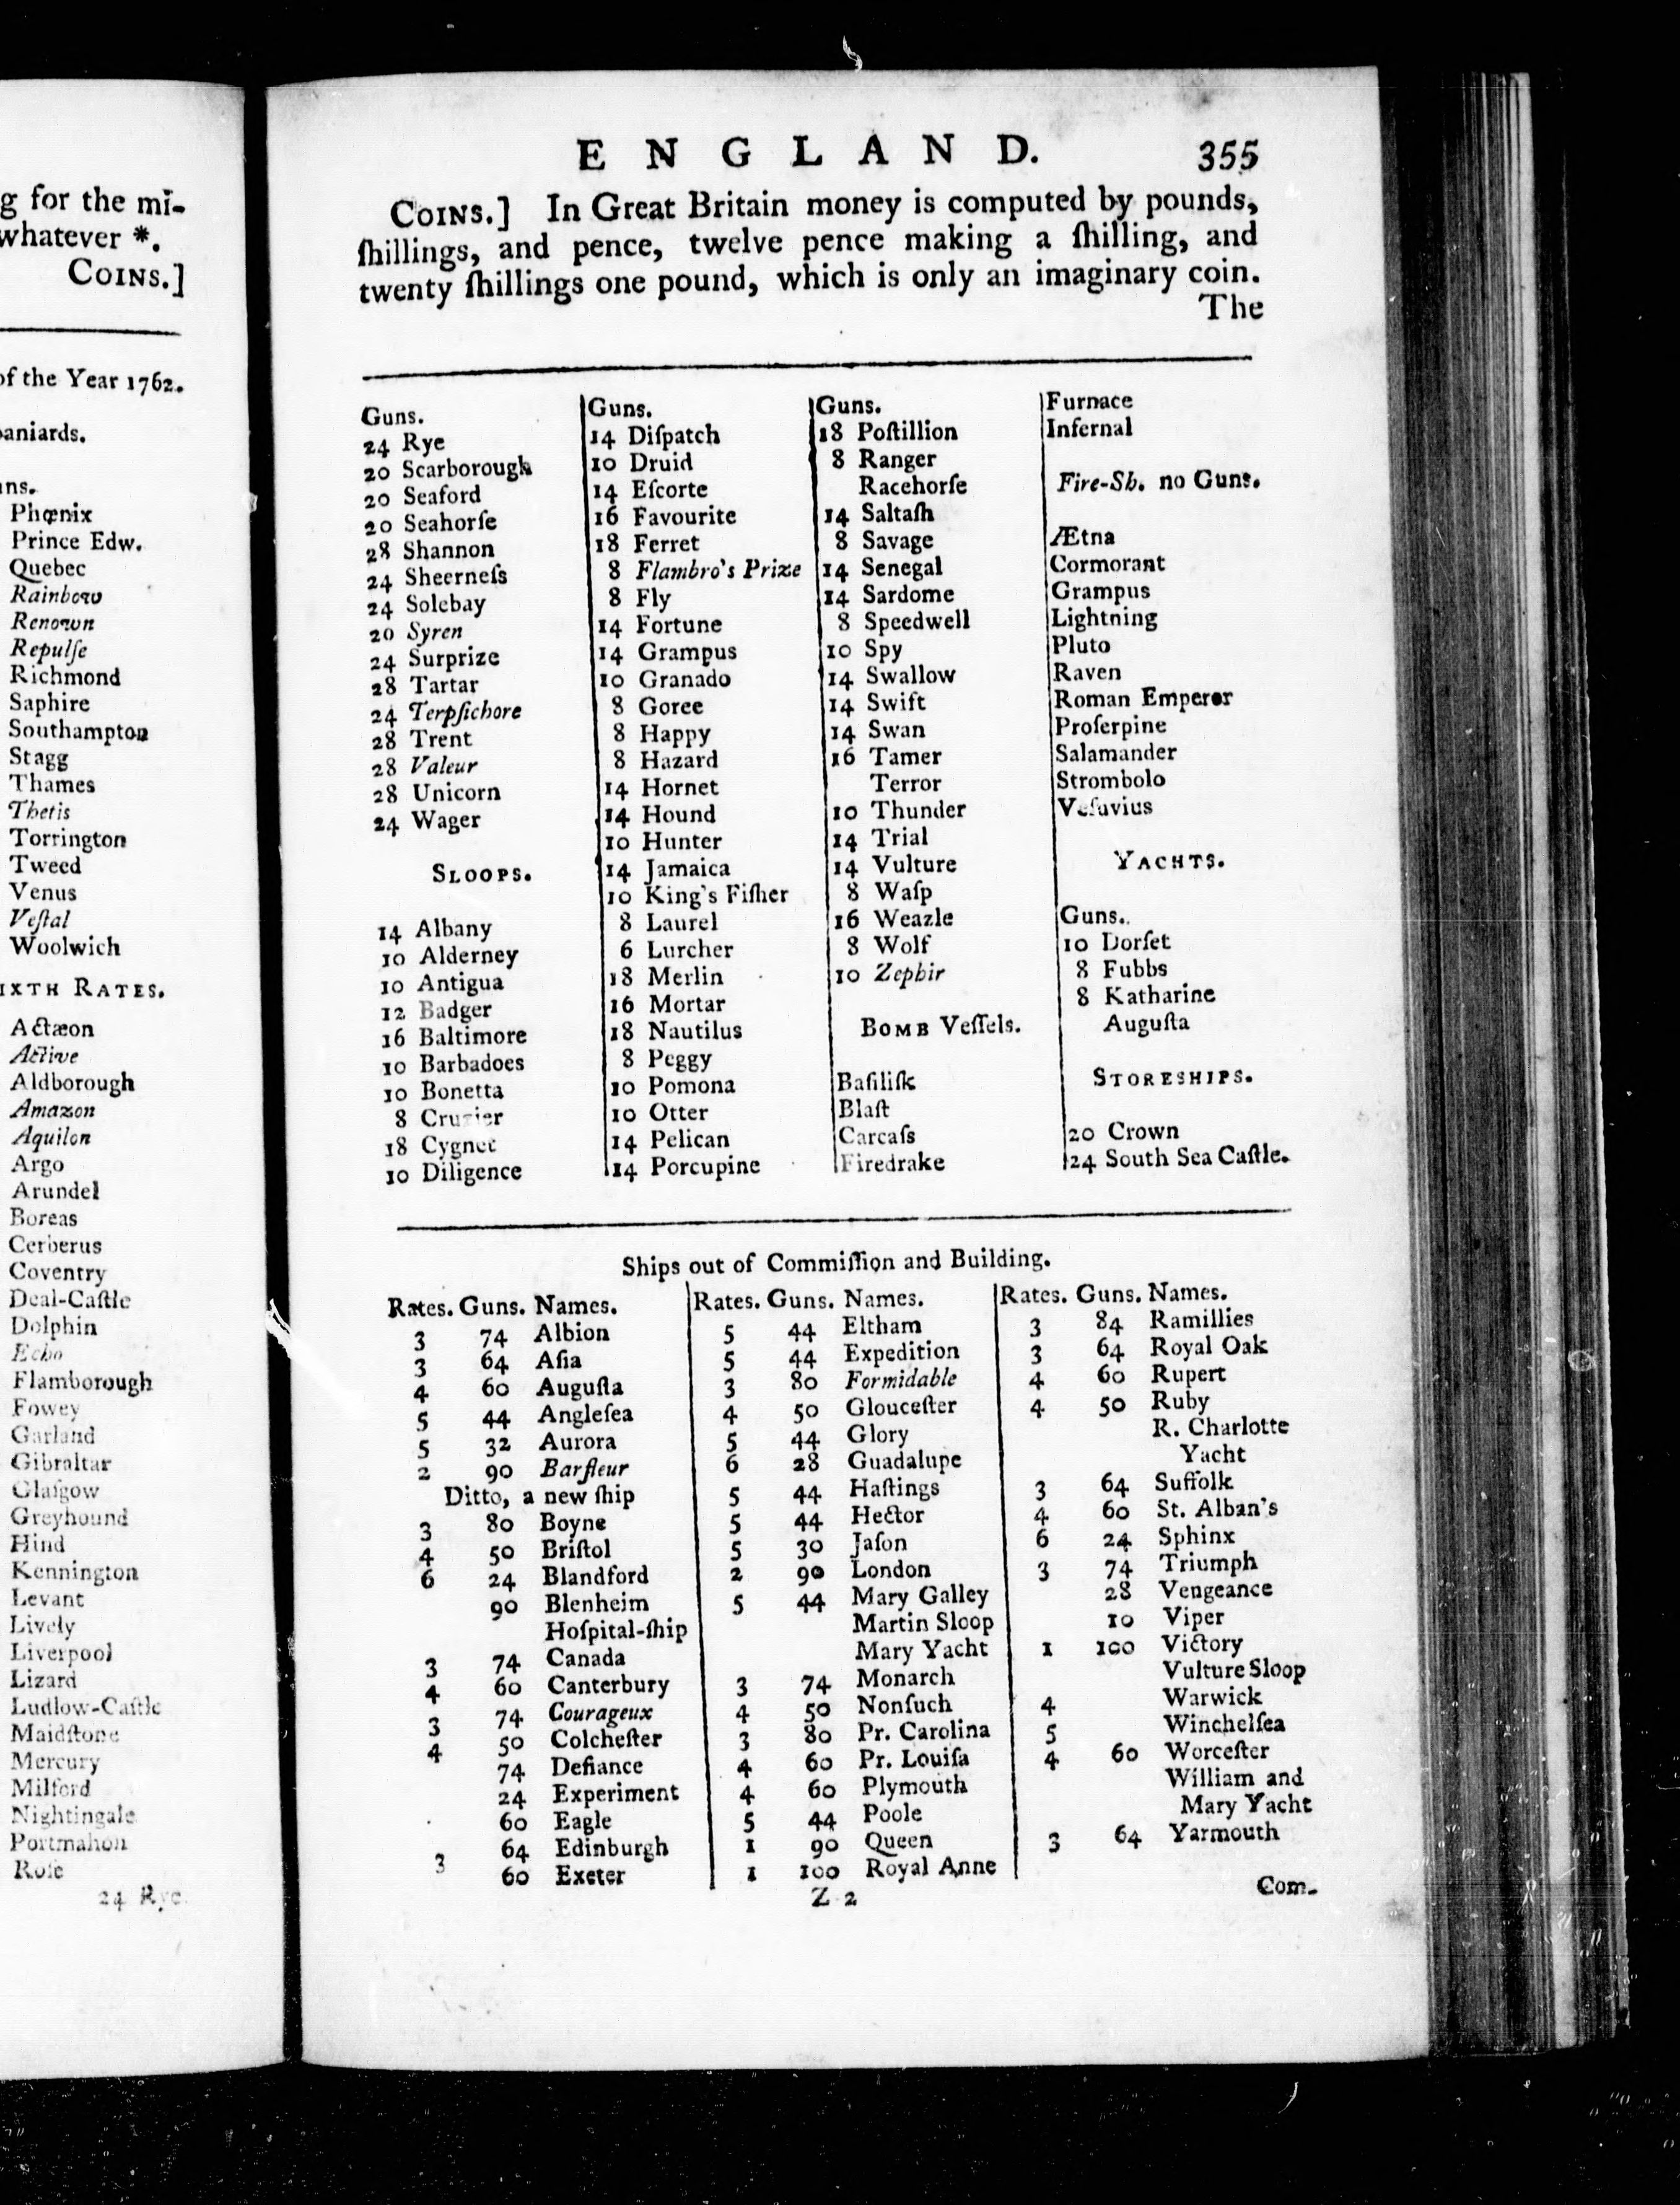 g for the mi-
whatever *.
COINS.]
of the Year 1762.
aniards.
ns.
Phœnix
Prince Edw.
Quebec
Rainbow
Renown
Repulſe
Richmond
Saphire
Southampton
Stagg
Thames
Thetis
Torrington
Tweed
Venus
Veſtal
Woolwich
IXTH RATES.
Actæon
Active
Aldborough
Amazon
Aquilon
Argo
Arundel
Boreas
Cerberus
Coventry
Deal-Caſtle
Dolphin
Echo
Flamborough
Fowey
Garland
Gibraltar
Glaſgow
Greyhound
Hind
Kennington
Levant
Lively
Liverpool
Lizard
Ludlow-Caſtle
Maidſtone
Mercury
Milford
Nightingale
Portmahon
Roſe
24 Rye.
ENGLAND. 355
COINS.] In Great Britain money is computed by pounds,
ſhillings, and pence, twelve pence making a ſhilling, and
twenty ſhillings one pound, which is only an imaginary coin.
The
Guns.
24 Rye
20 Scarborough
20 Seaford
20 Seahorſe
28 Shannon
24 Sheerneſs
24 Solebay
20 Syren
24 Surprize
28 Tartar
24 Terpſichore
28 Trent
28 Valeur
28 Unicorn
24 Wager
SLOOPS.
14 Albany
10 Alderney
10 Antigua
12 Badger
16 Baltimore
10 Barbadoes
10 Bonetta
8 Cruzier
18 Cygnet
10 Diligence
Guns.
14 Diſpatch
10 Druid
14 Eſcorte
16 Favourite
18 Ferret
8 Flambro's Prize
8 Fly
14 Fortune
14 Grampus
10 Granado
8 Goree
8 Happy
8 Hazard
14 Hornet
14 Hound
10 Hunter
14 Jamaica
10 King's Fiſher
8 Laurel
6 Lurcher
18 Merlin
16 Mortar
18 Nautilus
8 Peggy
10 Pomona
10 Otter
14 Pelican
14 Porcupine
Guns.
18 Poſtillion
8 Ranger
Racehorſe
14 Saltaſh
8 Savage
14 Senegal
14 Sardome
8 Speedwell
10 Spy
14 Swallow
14 Swift
14 Swan
16 Tamer
Terror
10 Thunder
14 Trial
14 Vulture
8 Waſp
16 Weazle
8 Wolf
10 Zephir
BOMB Veſſels.
Baſiliſk
Blaſt
Carcaſs
Firedrake
Furnace
Infernal
Fire-Sh. no Guns.
Ætna
Cormorant
Grampus
Lightning
Pluto
Raven
Roman Emperor
Proſerpine
Salamander
Strombolo
Veſuvius
YACHTS.
Guns.
10 Dorſet
8 Fubbs
8 Katharine
Auguſta
STORESHIPS.
20 Crown
24 South Sea Caſtle.
Ships out of Commiſſion and Building.
Rates. Guns. Names.
3 74 Albion
3 64 Aſia
4 60 Auguſta
5 44 Angleſea
5 32 Aurora
2 90 Barfleur
Ditto, a new ſhip
3 80 Boyne
4 50 Briſtol
6 24 Blandford
90 Blenheim
Hoſpital-ſhip
3 74 Canada
4 60 Canterbury
3 74 Courageux
4 50 Colcheſter
74 Defiance
24 Experiment
60 Eagle
3 64 Edinburgh
60 Exeter
Rates. Guns. Names.
5 44 Eltham
5 44 Expedition
3 80 Formidable
4 50 Glouceſter
5 44 Glory
6 28 Guadalupe
5 44 Haſtings
5 44 Hector
5 30 Jaſon
2 90 London
5 44 Mary Galley
Martin Sloop
Mary Yacht
3 74 Monarch
4 50 Nonſuch
3 80 Pr. Carolina
4 60 Pr. Louiſa
4 60 Plymouth
5 44 Poole
1 90 Queen
1 100 Royal Anne
Rates. Guns. Names.
3 84 Ramillies
3 64 Royal Oak
4 60 Rupert
4 50 Ruby
R. Charlotte
Yacht
3 64 Suffolk
4 60 St. Alban's
6 24 Sphinx
3 74 Triumph
28 Vengeance
10 Viper
1 100 Victory
Vulture Sloop
4 Warwick
5 Winchelſea
4 60 Worceſter
William and
Mary Yacht
3 64 Yarmouth
Z 2
Com-